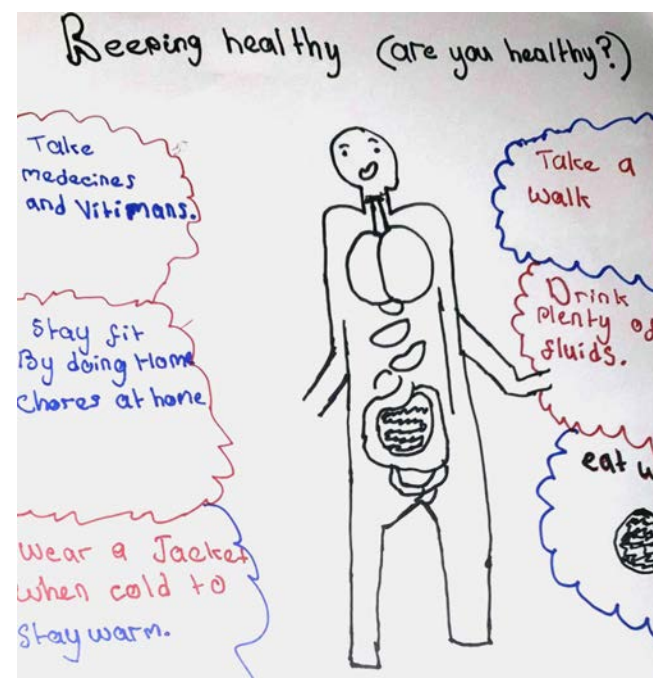 Keeping healthy (are you healthy?)
Take
medecines
and Vitimans.
Stay fit
By doing Home
chores at home
Wear a Jacket
when cold to
Stay warm.
Take a
walk
Drink
plenty of
fluids.
eat w